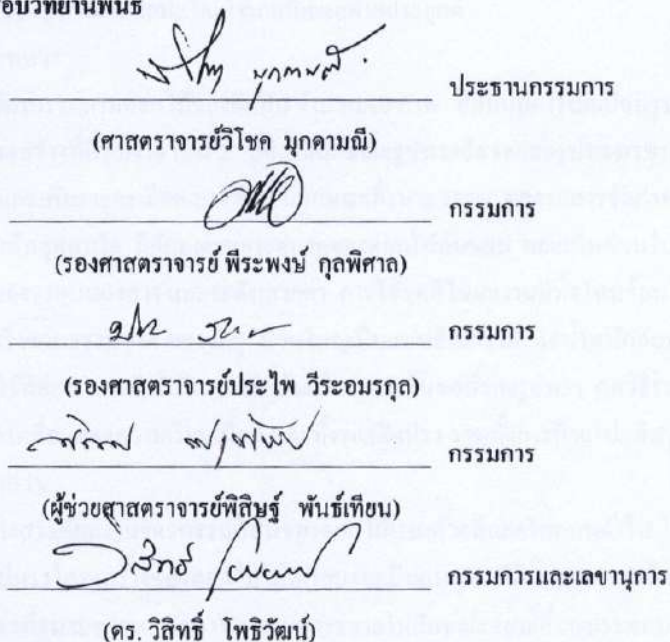 อบวิทยานิพนธ์
ประธานกรรมการ
(ศาสตราจารย์วิโชค มุกดามณี)
กรรมการ
(รองศาสตราจารย์ พีระพงษ์ กุลพิศาล)
กรรมการ
(รองศาสตราจารย์ประไพ วีระอมรกุล)
กรรมการ
(ผู้ช่วยศาสตราจารย์พิสิษฐ์ พันธ์เทียน)
กรรมการและเลขานุการ
(ดร. วิสิทธิ์ โพธิวัฒน์)